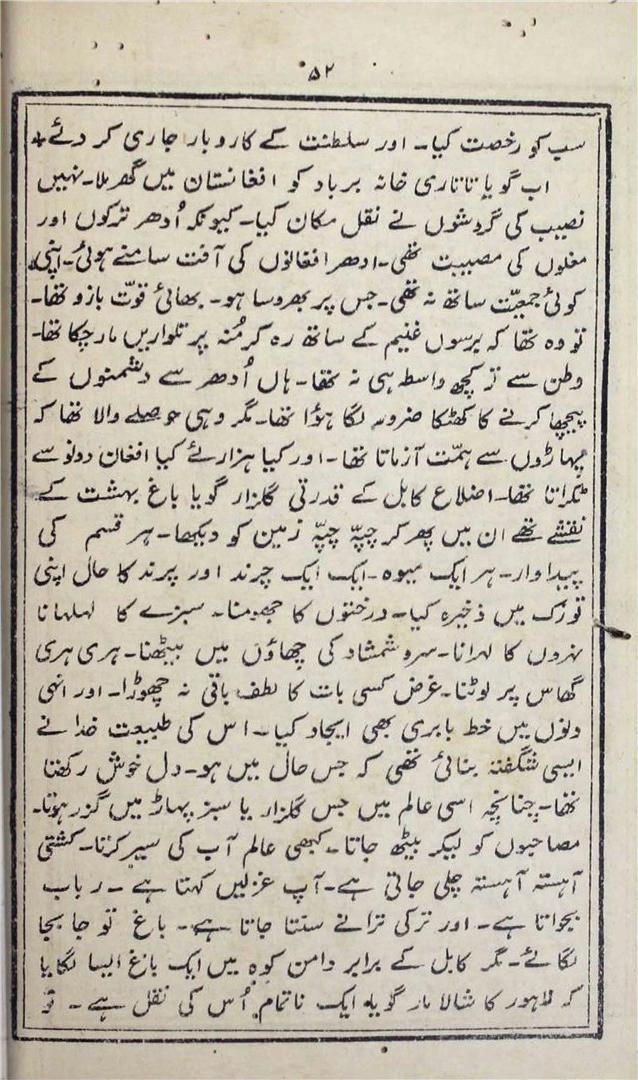 ۵۲
سب کو رخصت کیا۔ اور سلطنت کے کاروبار جاری کر دئے *
اب گویا تاتاری خانہ برباد کو افغانستان میں گھر ملا۔ نہیں
نصیب کی گردشوں نے نقل مکان کیا۔ کیونکہ اُدھر ترکوں اور
مغلوں کی مصیبت تھی۔ ادھر افغانوں کی آفت سامنے ہوئی۔ اپنی
کوئی جمعیّت ساتھ نہ تھی۔ جس پر بھروسا ہو۔ بھائی قوّت بازو تھا۔
تو وہ تھا کہ برسوں غنیم کے ساتھ رہ کر مُنہ پر تلواریں مار چکا تھا۔
وطن سے تو کچھ واسطہ ہی نہ تھا۔ ہاں اُدھر سے دشمنوں کے
پیچھا کرنے کا کھٹکا ضرور لگا ہؤا تھا۔ مگر وہی حوصلے والا تھا کہ
پہاڑوں سے ہمّت آزماتا تھا۔ اور کیا ہزارئے کیا افغان دونو سے
ٹکراتا تھا۔ اضلاع کابل کے قدرتی گلزار گویا باغ بہشت کے
نقشے تھے ان میں پھر کر چپّہ چپّہ زمین کو دیکھا۔ ہر قسم کی
پیداوار۔ ہر ایک میوہ۔ ایک ایک چرند اور پرند کا حال اپنی
توزک میں ذخیرہ کیا۔ درختوں کا جھومنا۔ سبزے کا لہلہانا
نہروں کا لہرانا۔ سرو شمشاد کی چھاؤں میں بیٹھنا۔ ہری ہری
گھاس پر لوٹنا۔ غرض کسی بات کا لطف باقی نہ چھوڑا۔ اور انہی
دنوں میں خط بابری بھی ایجاد کیا۔ اس کی طبیعت خدا نے
ایسی شگفتہ بنائی تھی کہ جس حال میں ہو۔ دل خوش رکھتا
تھا۔ چنانچہ اسی عالم میں جس گلزار یا سبز پہاڑ میں گزر ہوتا۔
مصاحبوں کو لیکر بیٹھ جاتا۔ کبھی عالم آب کی سیر کرتا۔ کشتی
آہستہ آہستہ چلی جاتی ہے۔ آپ غزلیں کہتا ہے۔ رباب
بجواتا ہے۔ اور ترکی ترانے سنتا جاتا ہے۔ باغ تو جا بجا
لگائے۔ مگر کابل کے برابر دامن کوہ میں ایک باغ ایسا لگایا
کہ لاہور کا شالامار گویا ایک ناتمام اُس کی نقل ہے۔ تو